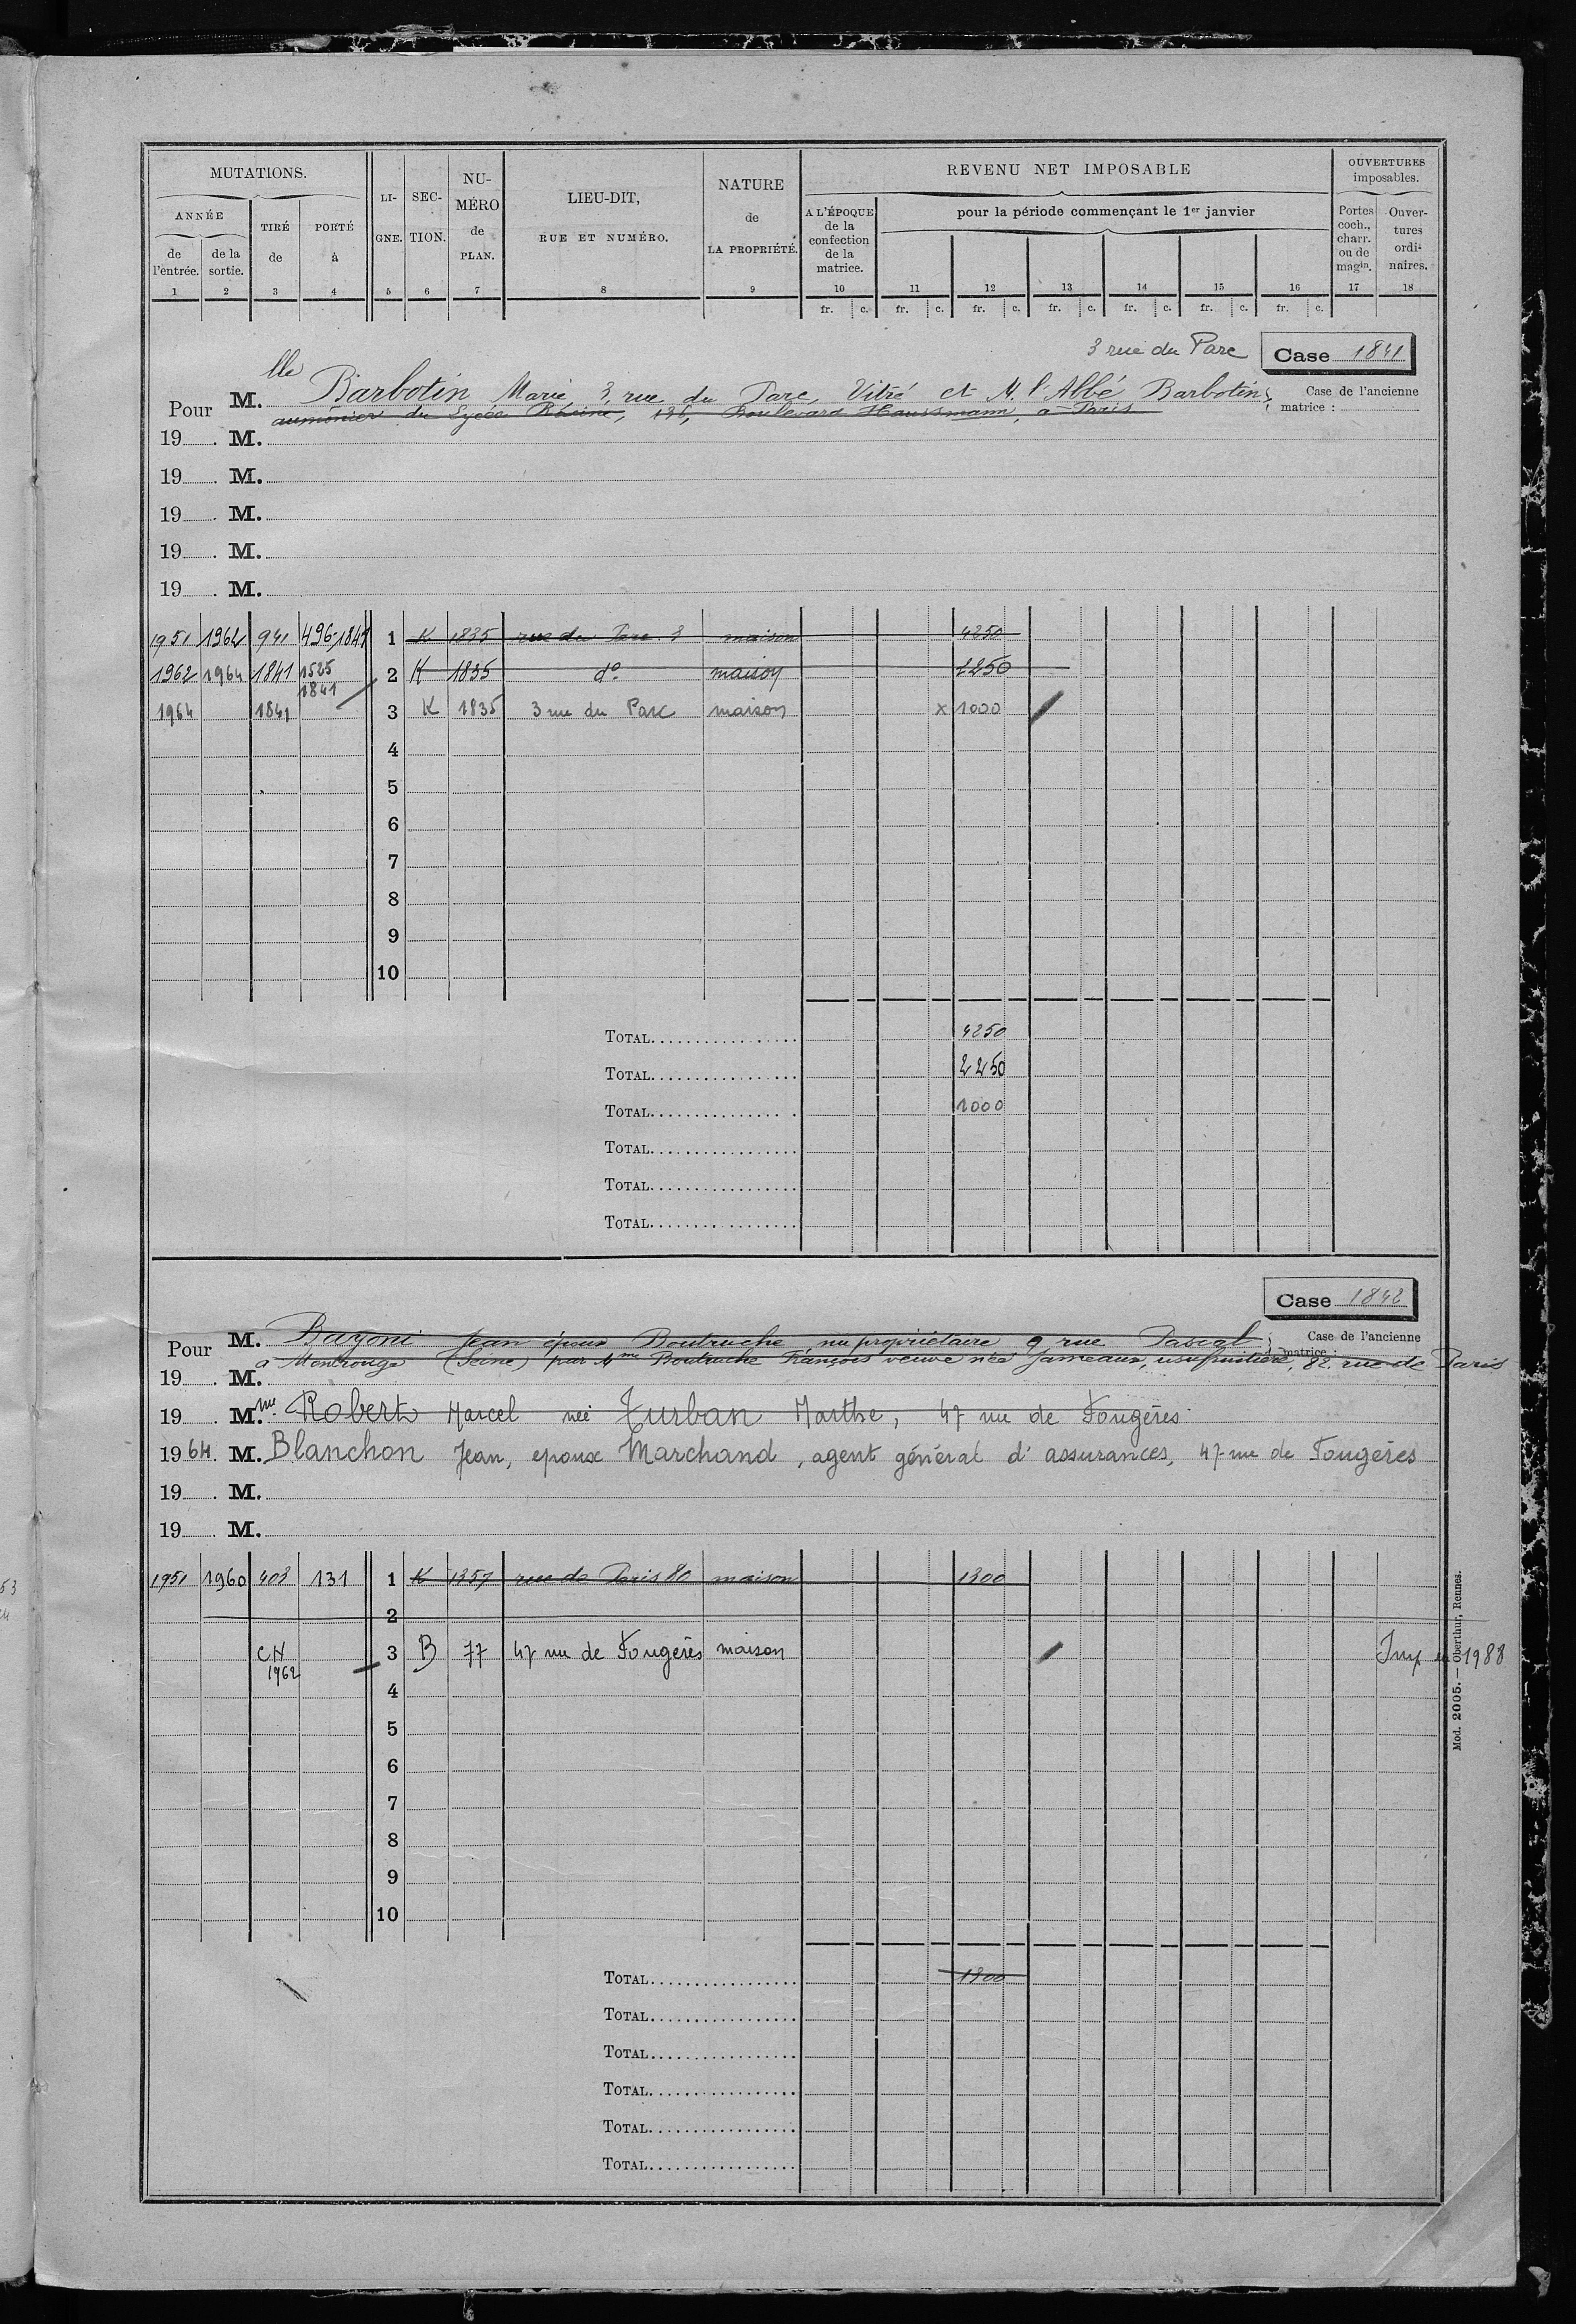 MUTATIONS.
ANNÉE
de l'entrée.
de la sortie.
TIRÉ de
PORTÉ à
LI-GNE.
SEC-TION.
NU-MÉRO de PLAN.
LIEU-DIT, RUE ET NUMÉRO.
NATURE de LA PROPRIÉTÉ.
REVENU NET IMPOSABLE
A L'ÉPOQUE de la confection de la matrice.
pour la période commençant le 1er janvier
OUVERTURES imposables.
Portes coch., charr. ou de magin.
Ouver-tures ordi-naires.
1 2 3 4 5 6 7 8 9 10 11 12 13 14 15 16 17 18
fr. c. fr. c. fr. c. fr. c. fr. c. fr. c. fr. c.
3 rue du Parc Case 1841
Pour M.lle Barbotin Marie 3, rue du Parc, Vitré et M. l'Abbé Barbotin
Case de l'ancienne matrice :
aumônier du Lycée, 136, Boulevard Haussmann, à Paris
19 . M.
19 . M.
19 . M.
19 . M.
19 . M.
1951 1962 941 496-1841 1 K 1835 rue du Parc 3 maison 4250
1962 1964 1841 1525 1841 2 K 1835 do maison 2250
1964 1841 3 K 1835 3 rue du Parc maison x 1000
4
5
6
7
8
9
10
TOTAL 4250
TOTAL 2250
TOTAL 1000
TOTAL
TOTAL
TOTAL
Case 1842
Pour M. Bazoni Jean époux Boutruche nu propriétaire 9 rue Pascal
Case de l'ancienne matrice :
à Montrouge (Seine) par Mme Boutruche François veuve née Jameaux, usufruitière, 82, rue de Paris
19 . M.
19 . M.me Robert Marcel née Turban Marthe, 47 rue de Fougères
1964 . M. Blanchon Jean, epoux Marchand, agent général d'assurances, 47 rue de Fougères
19 . M.
19 . M.
1951 1960 403 131 1 K 1357 rue de Paris 80 maison 1300
2
CN 1962 3 B 77 47 rue de Fougères maison Imp en 1988
4
5
6
7
8
9
10
TOTAL 1300
TOTAL
TOTAL
TOTAL
TOTAL
TOTAL
Mod. 2005. — Oberthur, Rennes.